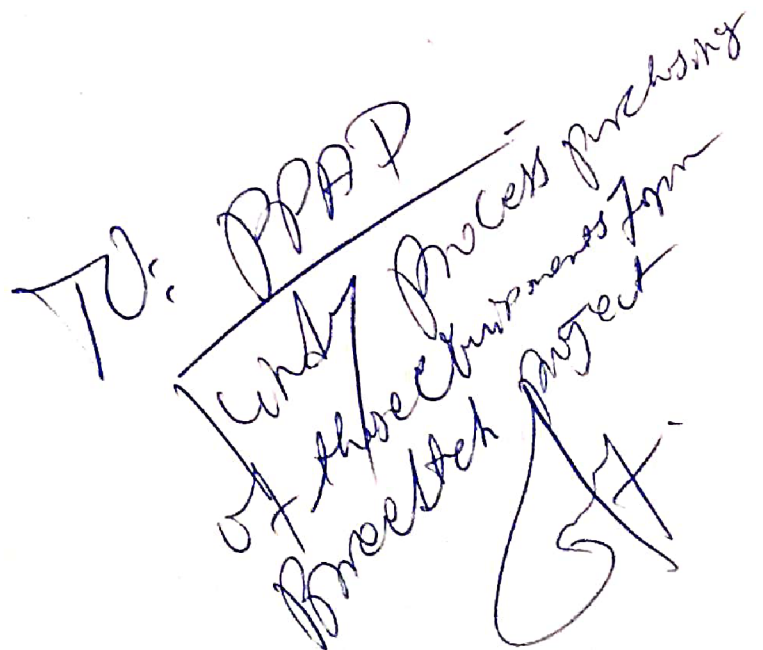 To: PPAD
Kindly process purchasing
of these equipments from
project